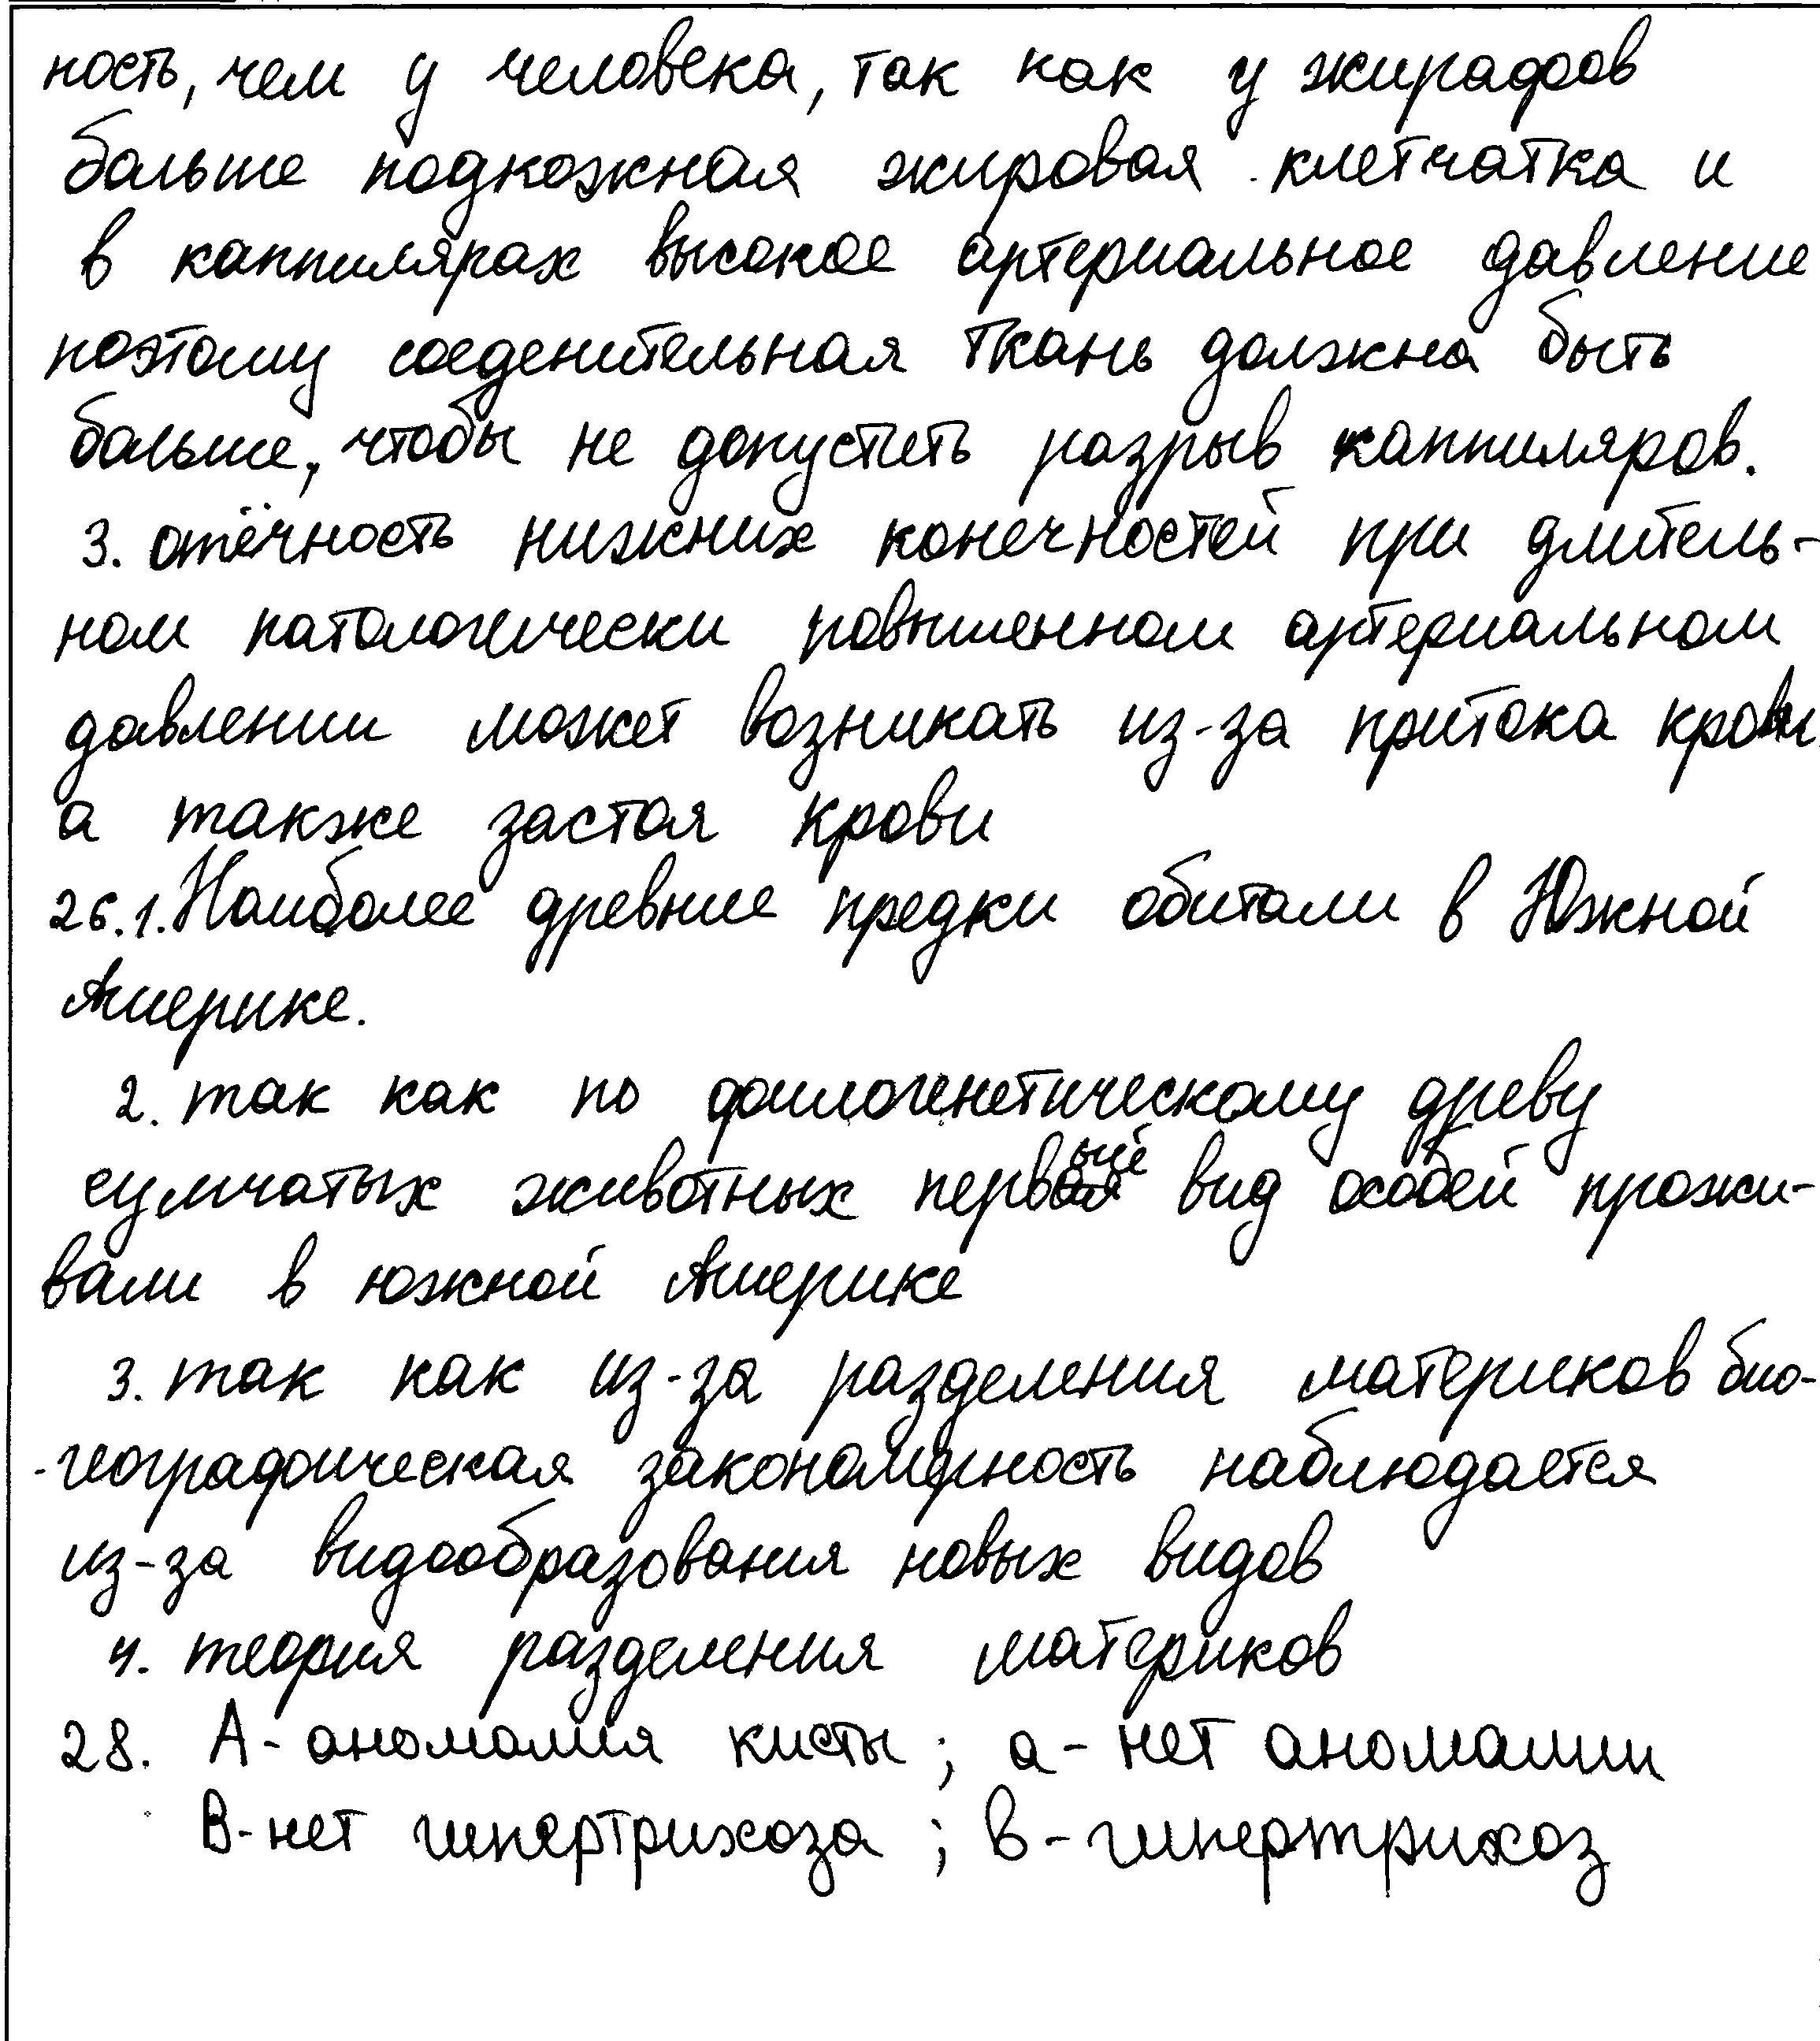 ность, чем у человека, так как у жирафов
больше подкожная жировая клетчатка и
в каппилярах высокое артериальное давление
поэтому соеденительная ткань должна быть
больше, чтобы не допустить разрыв каппиляров.
3. отёчность нижних конечностей при длитель-
ном патологически повышенном артериальном
давлении может возникать из-за притока крови
а также застоя крови
26.1. Наиболее древние предки обитали в Южной
Америке.
2. так как по филогенетическому древу
сумчатых животных первые вид особей прожи-
вали в южной Америке
3. так как из-за разделения материков био-
географическая закономерность наблюдается
из-за видообразования новых видов
4. теория разделения материков
28. А- аномалия кисты ; а- нет аномалии
В-нет гипертрихоза ; в-гипертрихоз